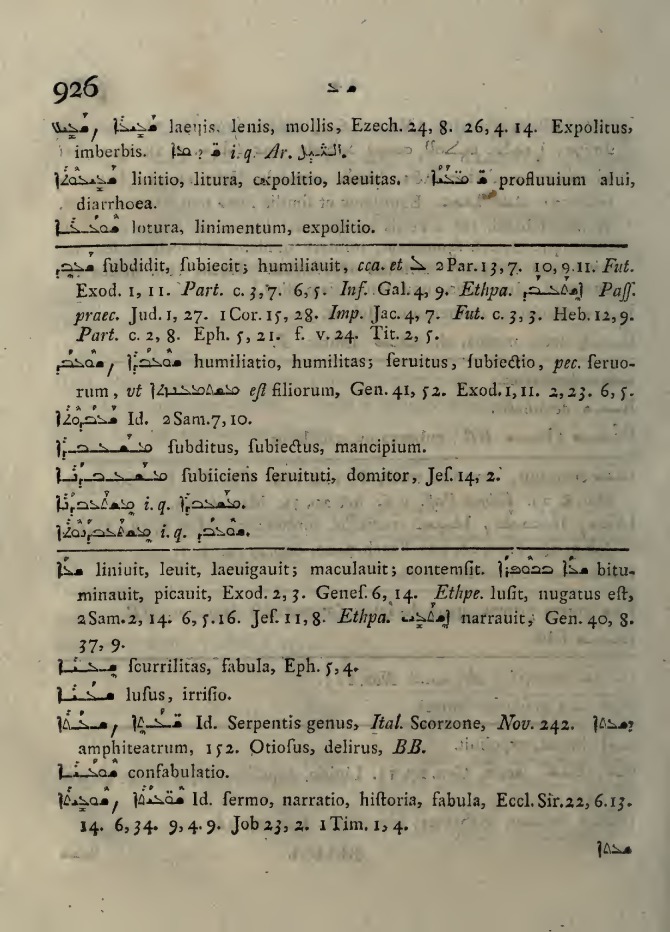 926 ܫ ܥ
ܫܥܝܥ, ܫܥܝܥܐ laeuis. lenis, mollis, Ezech. 24, 8. 26, 4. 14. Expolitus,
imberbis. i. q. Ar.
ܫܥܝܥܘܬܐ linitio, litura, expolitio, laeuitas. profluuium alui,
diarrhoea.
ܫܘܥܥܐ lotura, linimentum, expolitio.
ܫܥܒܕ ſubdidit, ſubiecit; humiliauit, cca. et ܠ 2Par. 13, 7. 10, 9. 11. Fut.
Exod. 1, 11. Part. c. 3, 7. 6, 5. Inf. Gal. 4, 9. Ethpa. ܐܫܬܥܒܕ Paſſ.
praec. Jud. 1, 27. 1 Cor. 15, 28. Imp. Jac. 4, 7. Fut. c. 3, 3. Heb. 12, 9.
Part. c. 2, 8. Eph. 5, 21. ſ. v. 24. Tit. 2, 5.
ܫܘܥܒܕ, ܫܘܥܒܕܐ humiliatio, humilitas; ſeruitus, ſubiectio, pec. ſeruo-
rum, vt est filiorum, Gen. 41, 52. Exod. 1, 11. 2, 23. 6, 5.
Id. 2 Sam. 7, 10.
ܡܫܥܒܕܐ ſubditus, ſubiectus, mancipium.
ܡܫܥܒܕܢܐ ſubiiciens ſeruituti, domitor, Jeſ. 14, 2.
ܡܫܬܥܒܕܢܐ i. q. ܡܫܥܒܕܐ.
ܡܫܬܥܒܕܢܘܬܐ i. q. ܫܘܥܒܕ.
ܫܥܐ liniuit, leuit, laeuigauit; maculauit; contemſit. ܫܥܐ bitu-
minauit, picauit, Exod. 2, 3. Geneſ. 6, 14. Ethpe. luſit, nugatus eſt,
2 Sam. 2, 14. 6, 5. 16. Jeſ. 11, 8. Ethpa. ܐܫܬܥܝ narrauit, Gen. 40, 8.
37, 9.
ſcurrilitas, fabula, Eph. 5, 4.
ܫܥܝܐ luſus, irriſio.
Id. Serpentis genus, Ital. Scorzone, Nov. 242.
amphiteatrum, 152. Otioſus, delirus, BB.
ܫܘܥܝܐ confabulatio.
ܫܘܥܝܬܐ, Id. ſermo, narratio, hiſtoria, fabula, Eccl. Sir. 22, 6. 13.
14. 6, 34. 9, 4. 9. Job 23, 2. 1 Tim. 1, 4.
ܫܥܬܐ